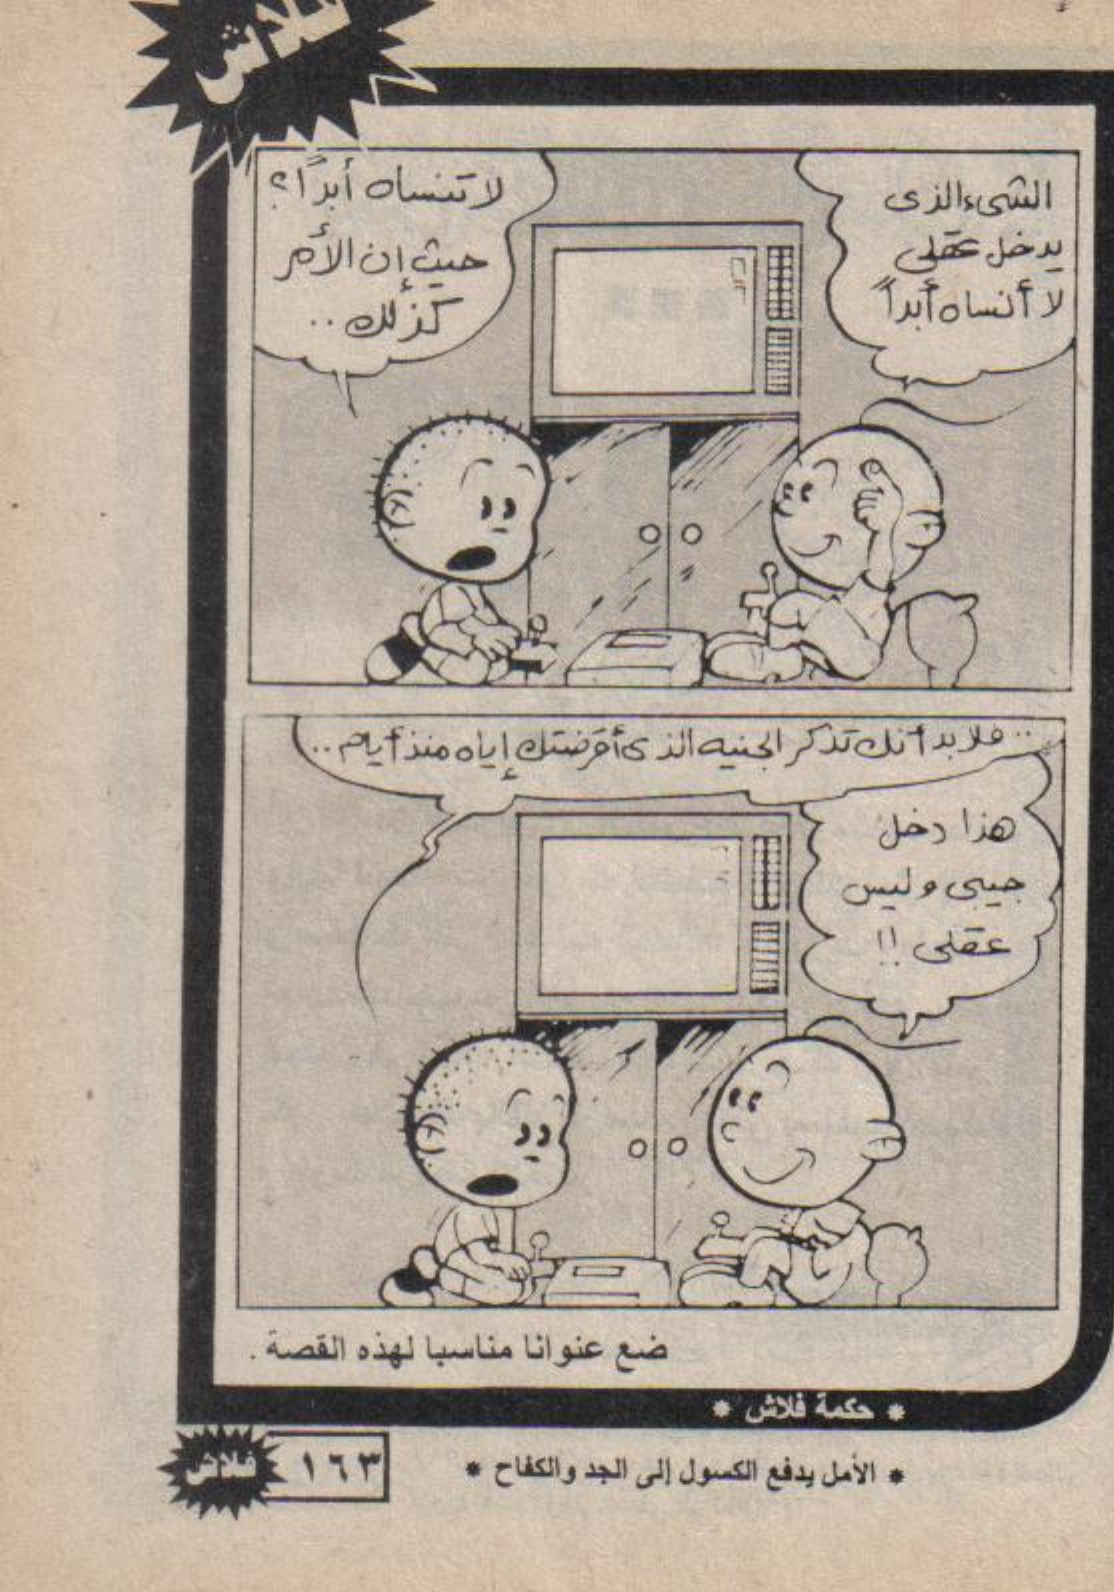 فلاش
الشىء الذى
يدخل عقلى
لا أنساه أبداً
لا تنساه أبدًا؟
حيث إن الأمر
كذلك ..
.. فلابد أنك تذكر الجنيه الذى أقرضتك إياه منذ أيام ..
هذا دخل
جيبى وليس
عقلى !!
ضع عنوانا مناسبا لهذه القصة .
* حكمة فلاش *
* الأمل يدفع الكسول إلى الجد والكفاح *
١٦٣
فلاش